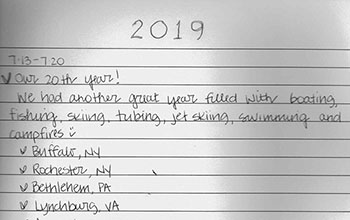 2019
7-13-7-20
Our 20th year!
We had another great year filled with boating,
fishing, skiing, tubing, jet skiing, swimming and
campfires
Buffalo, NY
Rochester, NY
Bethlehem, PA
Lynchburg, VA